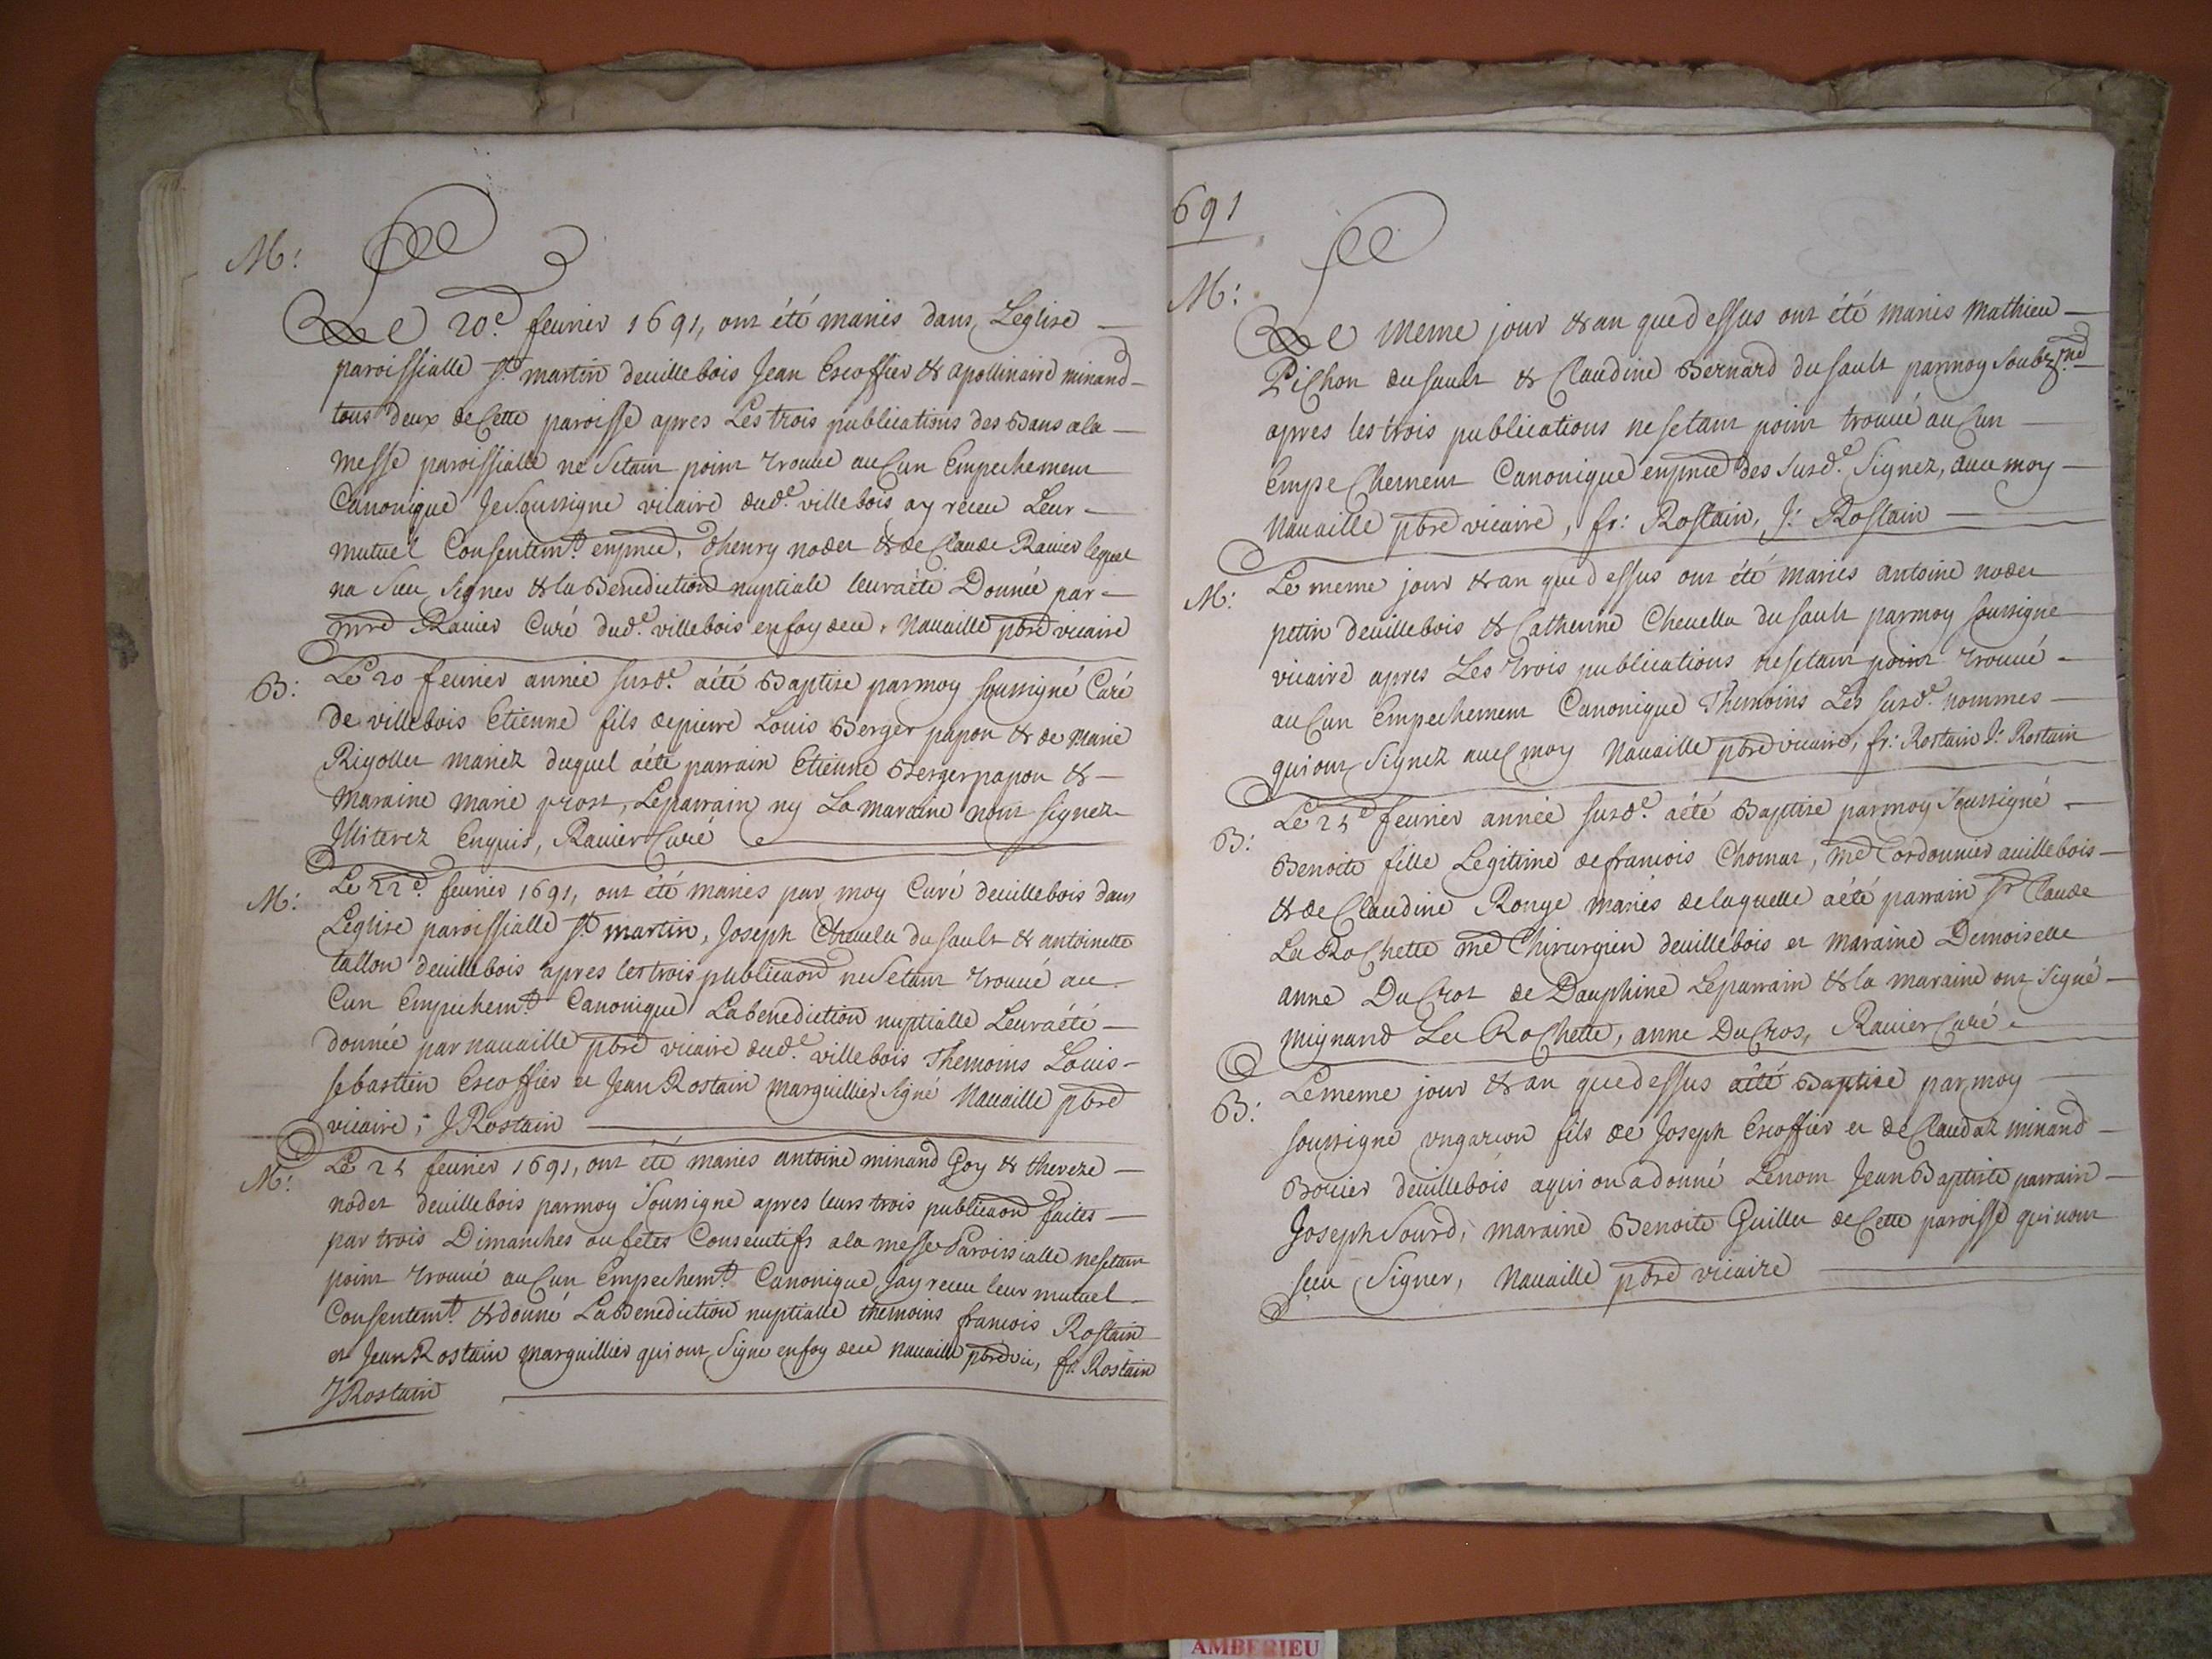 M:
Le 20e feurier 1691, ont été mariés dans L'eglise
paroissialle St martin deuillebois Jean Escoffier & apollinaire minand
tous deux de Cette paroisse apres Les trois publications des Bans ala
messe paroissialle ne setant point trouué auCun Empechement
Canonique Je Soussigné vicaire dud.e villebois ay receu Leur
mutuel Consentemt enpnce, d'henry nodet & de Claude Rauier lequel
na Sceu signer & la Benediction nuptiale leuraété Donnée par
mre Rauier Curé dud.e villebois enfoy dece, Nauaille pbre vicaire
B: Le 20 feurier année susd.e aété Baptisé parmoy soussigné Curé
de villebois Etienne fils depierre Louis Berger papon & de Marie
Rigollet mariez duquel aété parrain Etienne Berger papon &
maraine marie prost, Leparrain ny La maraine nont signez
Illiterez Enquis, Rauier Curé
M: Le 22e feurier 1691, ont été mariés par moy Curé deuillebois dans
L'eglise paroissialle St martin, Joseph Cheuelu du sault & antoinette
tallon deuillebois apres les trois publicaons ne Setant trouué au
Cun Empechemt Canonique La benediction nuptialle Leuraété
donnée par nauaille pbre vicaire dud.e villebois Themoins Louis
sebastien Escoffier et Jean Rostain marguillier signé Nauaille pbre
vicaire, J Rostain
M: Le 25 feurier 1691, ont été mariés antoine minand Goy & thereze
nodet deuillebois parmoy Soussigné apres leurs trois publicaons faites
par trois Dimanches ou fetes Consecutifs ala messe Paroissialle nesetant
point trouué auCun Empechemt Canonique, Jay receu leur mutuel
Consentemt & donné La Benediction nuptialle themoins francois Rostain
et Jean Rostain marguillier qui ont Signé enfoy dece nauaille pbre vic, fr: Rostain
J Rostain
691
M:
Le meme jour & an que dessus ont été mariés mathieu
Pichon du sault & Claudine Bernard du sault parmoy Soubzné
apres les trois publications ne setant point trouué auCun
EmpeChement Canonique enpnce des susd.e Signez, auec moy
Nauaille pbre vicaire, fr: Rostain, J: Rostain
M: Le meme jour & an que dessus ont été mariés antoine nodet
petin deuillebois & Catherine Cheuellu du sault parmoy soussigné
vicaire apres Les trois publications nesetant point trouué
auCun Empechement Canonique Themoins Les susd.e nommes
qui ont Signez auec moy Nauaille pbre vicaire, fr: Rostain J: Rostain
B: Le 25e feurier année susd.e aété Baptisé parmoy Soussigné
Benoite fille Legitime de francois Chomat, me Cordonnier auillebois
& de Claudine Ronge mariés delaquelle aété parrain Sr Claude
La RoChette me Chirurgien deuillebois et maraine Demoiselle
anne DuCros de Dauphiné Leparrain & la maraine ont signé
mignand La RoChette, anne DuCros, Rauier Curé
B: Lememe jour & an que dessus aété Baptisé parmoy
soussigné vngarcon fils de Joseph Escoffier et de Claudaz minand
Bouier deuillebois aqui on a donné Lenom Jean Baptiste parrain
Joseph Sourd, maraine Benoite Guillet de Cette paroisse qui nont
sceu Signer, Nauaille pbre vicaire
AMBERIEU